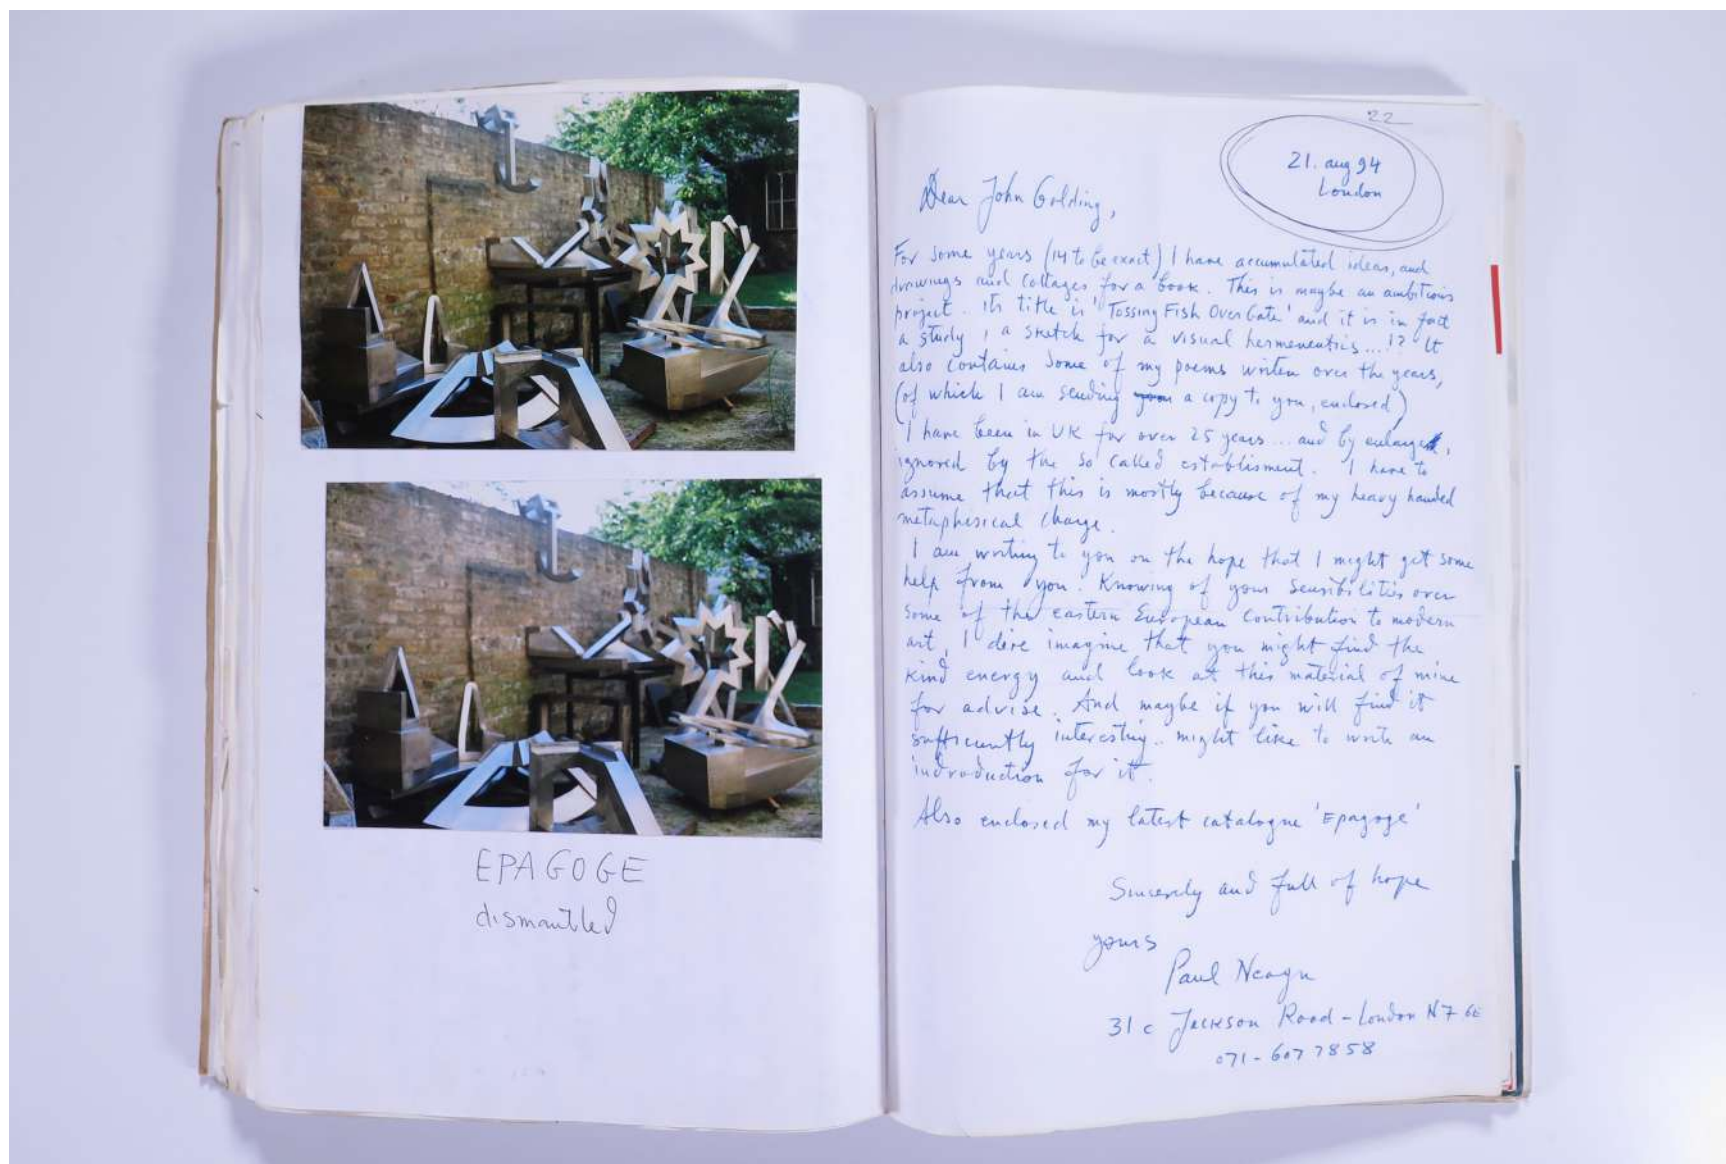 EPAGOGE
dismantled
22
21. aug 94
London
Dear John Golding,
For some years (14 to be exact) I have accumulated ideas, and
drawings and collages for a book. This is maybe an ambitious
project. Its title is 'Tossing Fish Over Gate' and it is in fact
a study, a sketch for a visual hermeneutics...!? It
also contains some of my poems writen over the years,
(of which I am sending a copy to you, enclosed)
I have been in UK for over 25 years... and by enlarge,
ignored by the so called establisment. I have to
assume that this is mostly because of my heavy handed
metaphesical charge.
I am writing to you on the hope that I might get some
help from you. Knowing of your sensibilities over
some of the eastern European Contribution to modern
art, I dere imagine that you might find the
kind energy and look at this material of mine
for advise. And maybe if you will find it
sufficiently interesting.. might like to write an
indroduction for it.
Also enclosed my latest catalogue 'Epagoge'
Sincerely and full of hope
yours
Paul Neagu
31 c Jackson Road - London N7 6E
071 - 607 7858